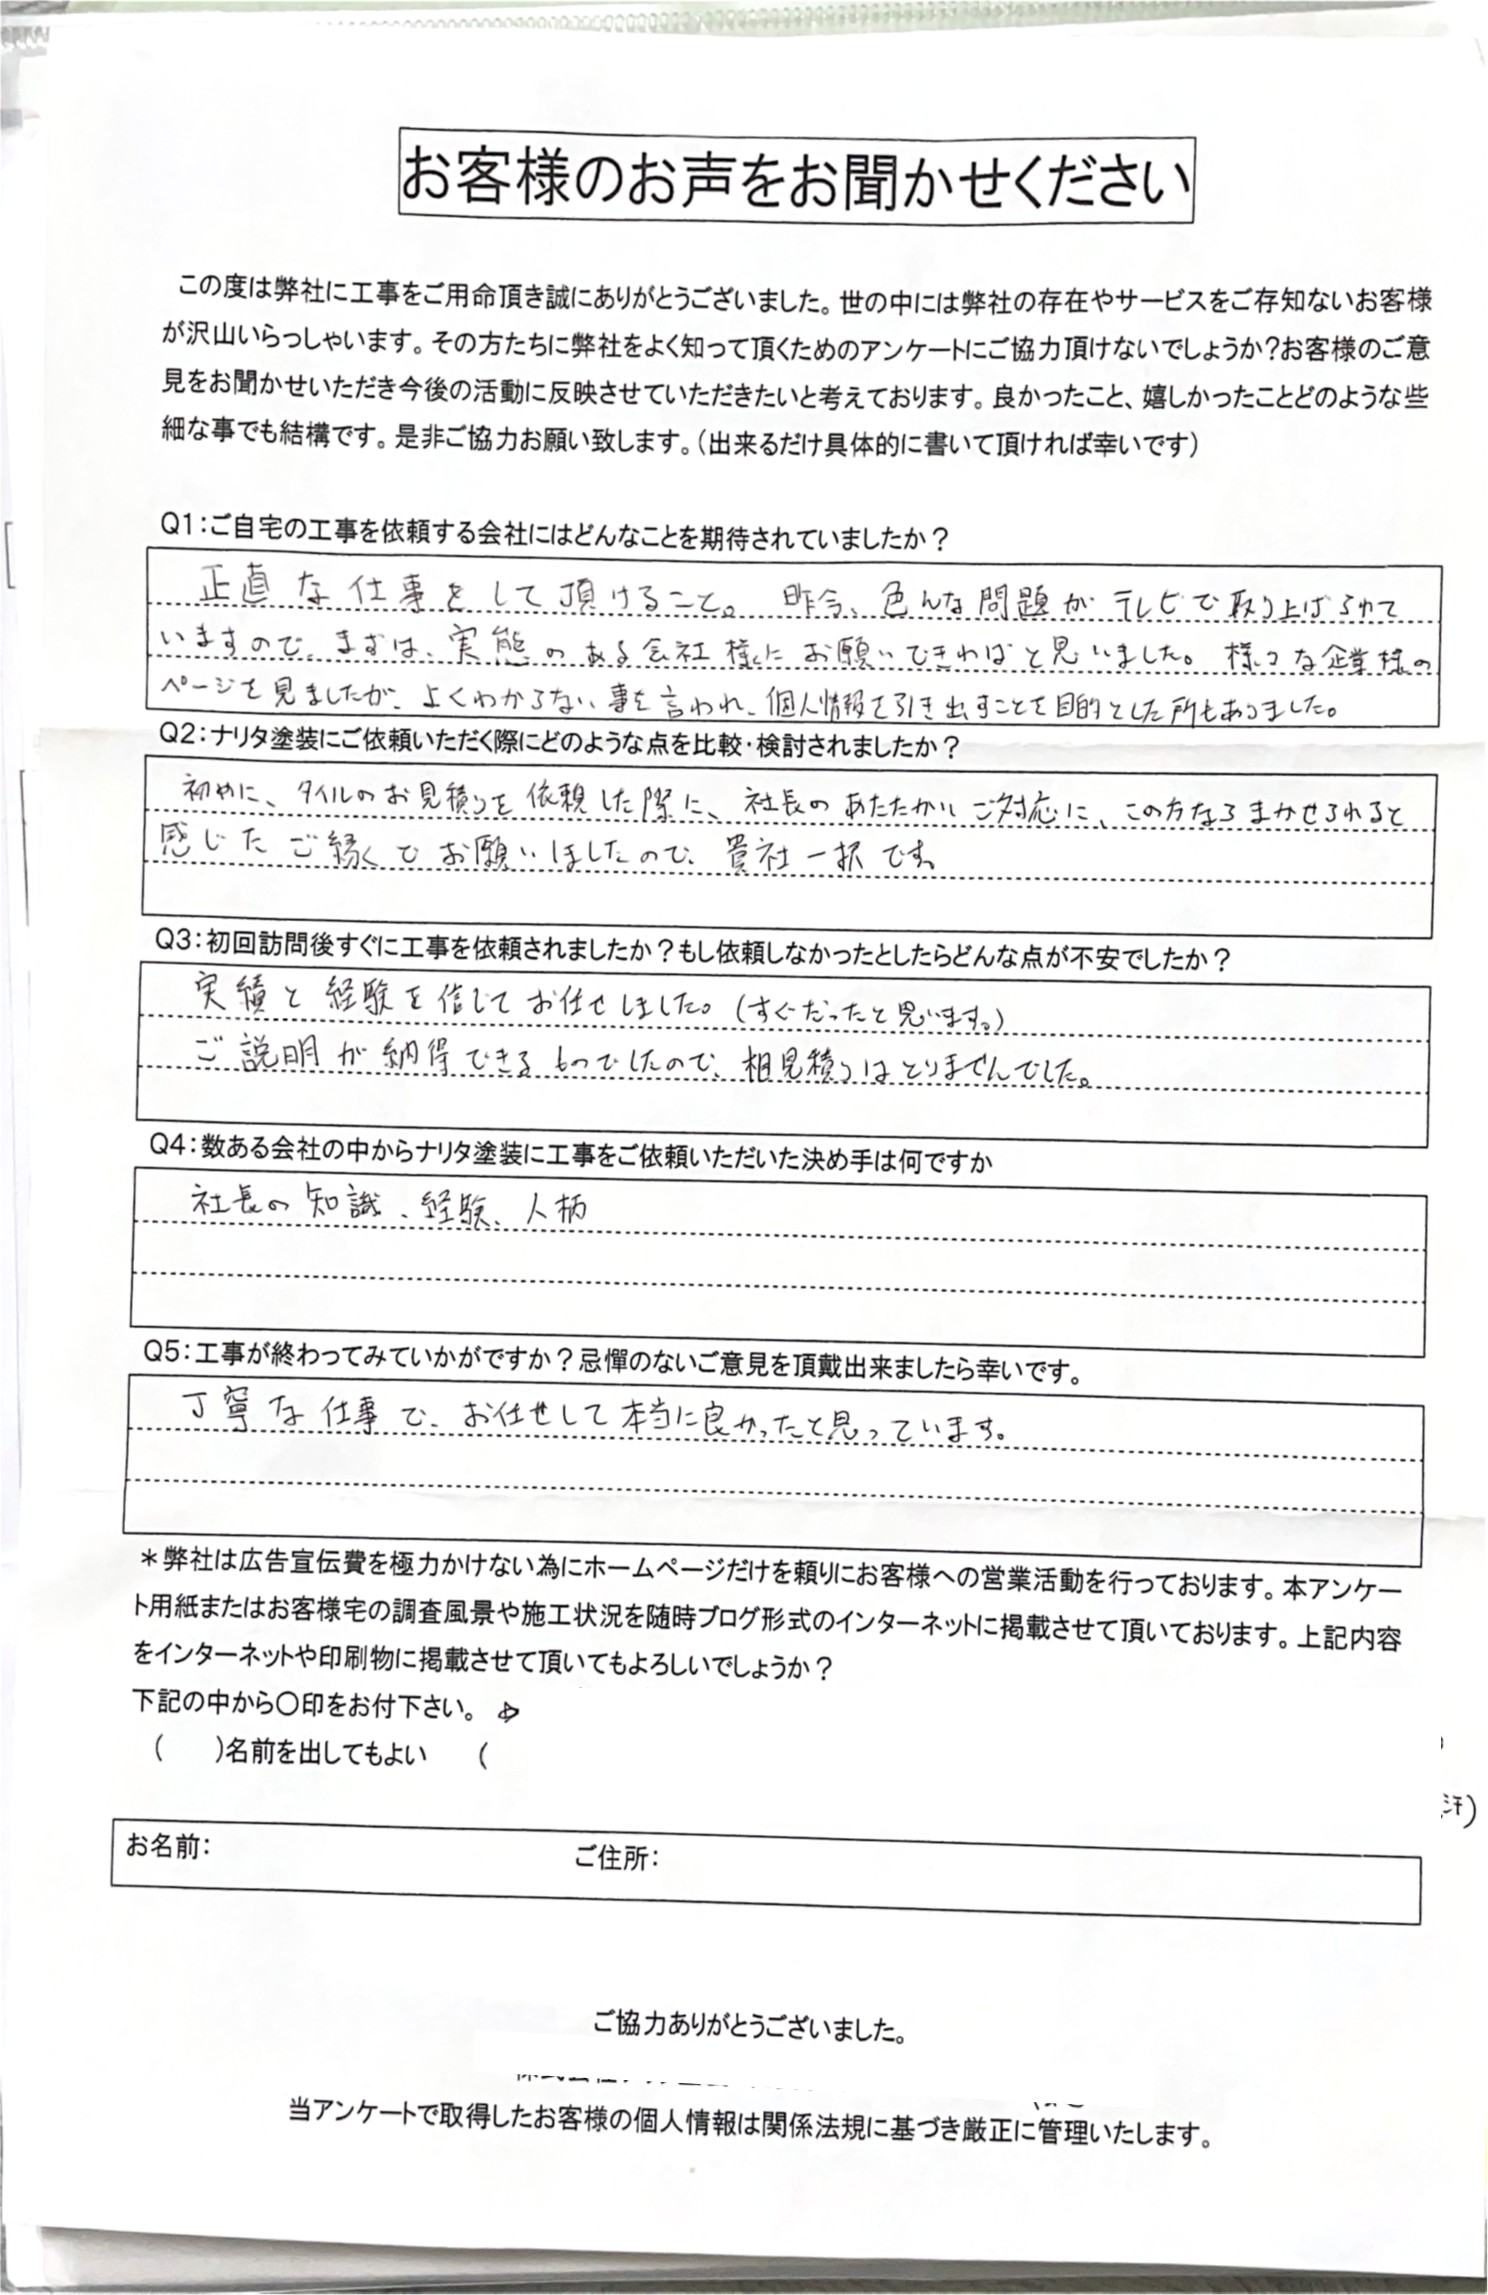 お客様のお声をお聞かせください
この度は弊社に工事をご用命頂き誠にありがとうございました。世の中には弊社の存在やサービスをご存知ないお客様
が沢山いらっしゃいます。その方たちに弊社をよく知って頂くためのアンケートにご協力頂けないでしょうか?お客様のご意
見をお聞かせいただき今後の活動に反映させていただきたいと考えております。良かったこと、嬉しかったことどのような些
細な事でも結構です。是非ご協力お願い致します。(出来るだけ具体的に書いて頂ければ幸いです)
Q1:ご自宅の工事を依頼する会社にはどんなことを期待されていましたか?
正直な仕事をして頂けること。 昨今、色んな問題がテレビで取り上げられて
いますので、まずは、実態のある会社様にお願いできればと思いました。様々な企業様の
ページを見ましたが、よくわからない事を言われ、個人情報を引き出すことを目的とした所もありました。
Q2:ナリタ塗装にご依頼いただく際にどのような点を比較・検討されましたか?
初めに、タイルのお見積りを依頼した際に、社長のあたたかいご対応に、この方ならまかせられると
感じたご縁でお願いしましたので、貴社一択です。
Q3:初回訪問後すぐに工事を依頼されましたか?もし依頼しなかったとしたらどんな点が不安でしたか?
実績と経験を信じてお任せしました。(すぐだったと思います。)
ご説明が納得できるものでしたので、相見積りはとりませんでした。
Q4:数ある会社の中からナリタ塗装に工事をご依頼いただいた決め手は何ですか
社長の知識、経験、人柄
Q5:工事が終わってみていかがですか?忌憚のないご意見を頂戴出来ましたら幸いです。
丁寧な仕事で、お任せして本当に良かったと思っています。
*弊社は広告宣伝費を極力かけない為にホームページだけを頼りにお客様への営業活動を行っております。本アンケー
ト用紙またはお客様宅の調査風景や施工状況を随時ブログ形式のインターネットに掲載させて頂いております。上記内容
をインターネットや印刷物に掲載させて頂いてもよろしいでしょうか?
下記の中から〇印をお付下さい。
( )名前を出してもよい (
汗)
お名前: ご住所:
ご協力ありがとうございました。
当アンケートで取得したお客様の個人情報は関係法規に基づき厳正に管理いたします。